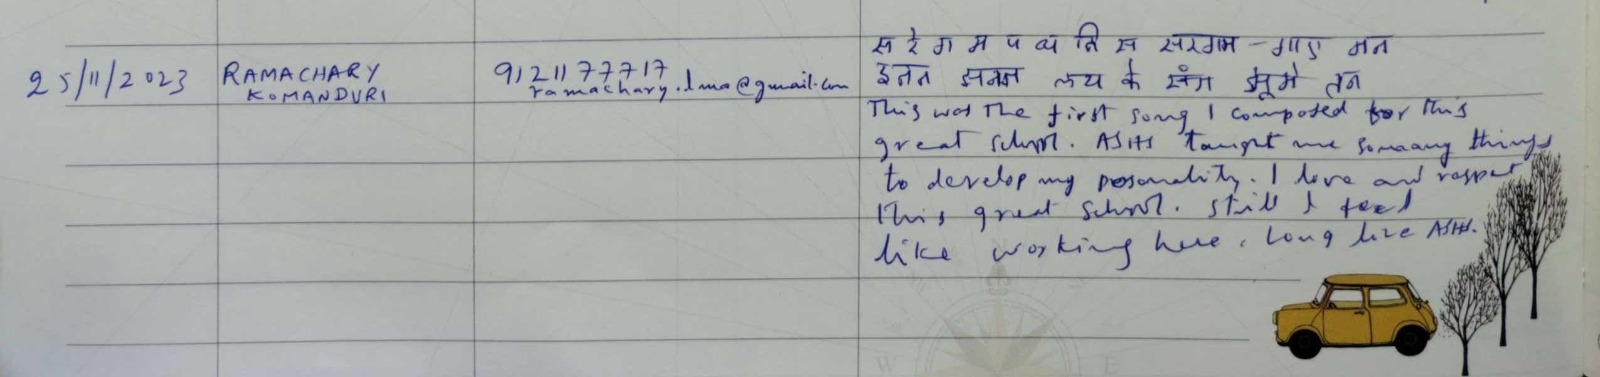 स रे ग म प ध नि स सरगम - गाए मन
25/11/2023 RAMACHARY 9121177717
KOMANDURI ramachary.lma@gmail.com
झनन लय के संग झूमे तन
This was the first song I composed for this
great school. ASHS taught me somaany things
to develop my personality. I love and respect
this great school. Still I feel
like working here. Long live ASHS.
W E